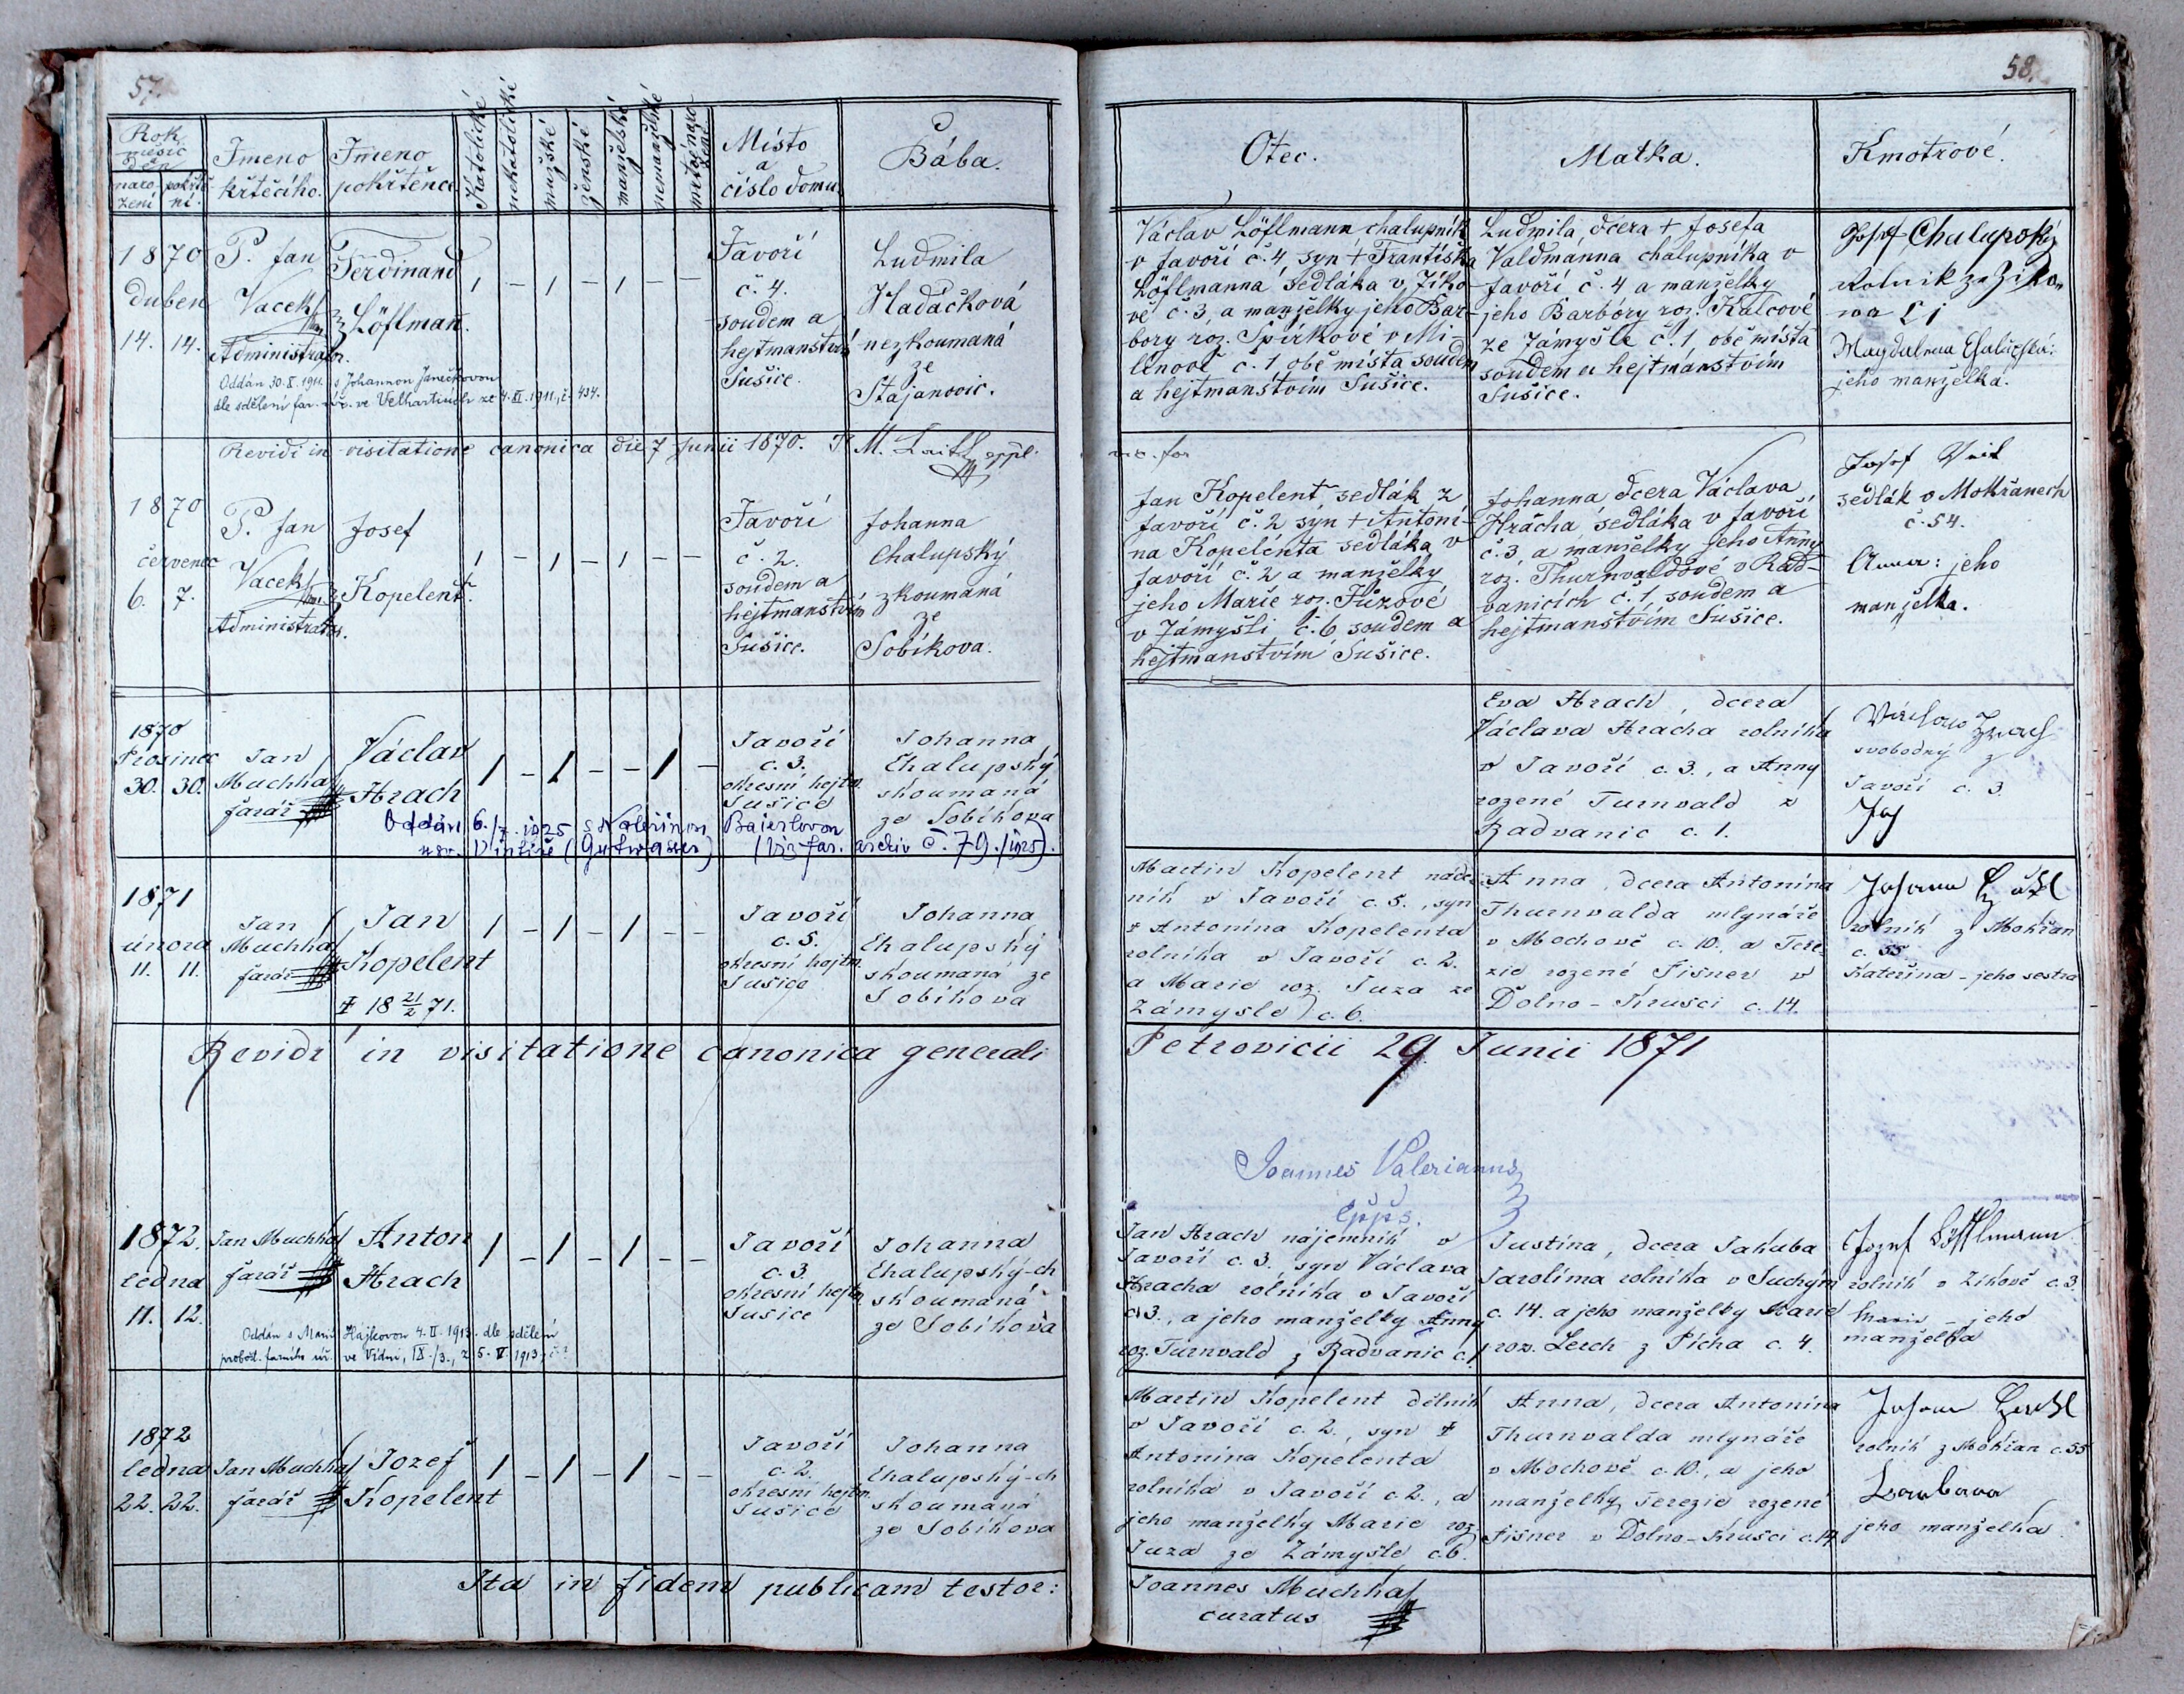 57.
Rok
měsíc
den
naro-
zení
pokřtě-
ní.
Jmeno
křtěcího.
Jmeno
pokřtěnce
Katolické
nekatolické
mužské
ženské
manželské
nemanželské
mrtvě naro
zené
Místo
a
číslo domu
Bába.
1870
duben
14. 14.
P. Jan
Vacek
Administrator.
Ferdinand
Löflman.
1 - 1 - 1 - -
Javoří
č. 4.
soudem a
hejtmanstvím
Sušice
Ludmila
Hadáčková
nezkoumaná
ze
Stajanovic.
Oddán 30.X.1911. s Johannou Janečkovou
dle sdělení far. úř. ve Velharticích ze 4.XI.1911, č. 434.
Revidi in visitatione canonica die 7 Junii 1870.
1870
červenec
6. 7.
P. Jan
Vacek
Administrator.
Josef
Kopelent.
1 - 1 - 1 - -
Javoří
č. 2.
soudem a
hejtmanstvím
Sušice.
Johanna
Chalupský
zkoumaná
ze
Sobíkova.
1870
Prosinec
30. 30.
Jan
Muchka
farář
Václav
Hrach
1 - 1 - - 1 -
Javoří
c. 3.
okresní hejtm.
Sušice
Johanna
Chalupský
skoumaná
ze Sobíkova
Oddán 6./7. 1925 s Kateřinou Baierlovou
(Gutwasser) (Viz far. archiv č. 79./1925).
1871
února
11. 11.
Jan
Muchka
farář
Jan
Kopelent
‡ 18 21/2 71.
1 - 1 - 1 - -
Javoří
c. 5.
okresní hejtm.
Sušice
Johanna
Chalupský
skoumaná ze
Sobíkova
Revidi in visitatione canonica generali
1872.
ledna
11. 12.
Jan Muchka
farář
Anton
Hrach
1 - 1 - 1 - -
Javoří
c. 3.
okresní hejtm.
Sušice
Johanna
Chalupský-ch
skoumaná
ze Sobíkova
Oddán s Marií Hájkovou 4.II.1913. dle sdělení
probošt. farního úř. ve Vídni, IX./3., z 5.II.1913,
1872
ledna
22. 22.
Jan Muchka
farář
Jozef
Kopelent
1 - 1 - 1 - -
Javoří
c. 2.
okresní hejtm.
Sušice
Johanna
Chalupský-ch
skoumaná
ze Sobíkova
Ita in fidem publicam testor:
58.
Otec.
Matka.
Kmotrové.
Václav Löflmann chalupník
v Javoří č. 4, syn + Františka
Löflmanna sedláka v Žiko-
vě č. 3, a manželky jeho Bar-
bory roz. Spírkové v Mi-
línově č. 1 obě místa soudem
a hejtmanstvím Sušice.
Ludmila, dcera + Josefa
Valdmanna chalupníka v
Javoří č. 4 a manželky
jeho Barbory roz. Kalcové
ze Zámyšle č. 1 obě místa
soudem a hejtmanstvím
Sušice.
Josef Chalupský
Rolnik ze Žiko
jeho manželka.
Jan Kopelent sedlák z
Javoří č. 2 syn + Antoni-
na Kopelenta sedláka v
Javoří č. 2 a manželky
jeho Marie roz. Jůzové
v Zámyšli č. 6 soudem a
hejtmanstvím Sušice.
Johanna dcera Václava
Hracha sedláka v Javoří
č. 3 a manželky jeho Anny
roz. Thurnvaldové v Rad-
vanicích č. 1, soudem a
hejtmanstvím Sušice.
Josef Veit
sedlák v Mokřanech
č. 54.
Anna: jeho
manželka.
Eva Hrach, dcera
Václava Hracha rolníka
v Javoří c. 3., a Anny
rozené Turnvald z
Radvanic c. 1.
svobodný z
Javoří c. 3.
Martin Kopelent náde-
ník v Javoří c. 5., syn
‡ Antonína Kopelenta
rolníka v Javoří c. 2.
a Marie roz. Juza ze
Zámysle c. 6.
Anna, dcera Antonína
Thurnvalda mlynáře
v Mochově c. 10. a Tere-
zie rozené Fišner v
Dolno-Krusci c. 14.
rolník z Mokřan
c. 55
Kateřina - jeho sestra
Petrovicii 29 Junii 1871
Joannes Valerianus
Eppus.
Jan Hrach nájemník v
Javoří c. 3., syn Václava
Hracha rolníka v Javoří
c. 3., a jeho manželky Anny
roz. Turnvald z Radvanic c. 1
Justina, dcera Jakuba
Jarolíma rolníka v Suchým
c. 14. a jeho manželky Marie
roz. Lerch z Picha c. 4.
Jozef Löfflmann
rolník v Žikově c. 3.
Marie - jeho
manželka
Martin Kopelent dělník
v Javoří c. 2., syn ‡
Antonína Kopelenta
rolníka v Javoří c. 2., a
jeho manželky Marie roz
Juza ze Zámyšle c. 6.
Anna, dcera Antonína
Thurnvalda mlynáře
v Mochově c. 10., a jeho
manželky Terezie rozené
Fišner v Dolno-Krusci c. 14
rolník z Mokřan c. 55
Barbara
jeho manželka.
Joannes Muchka
curatus